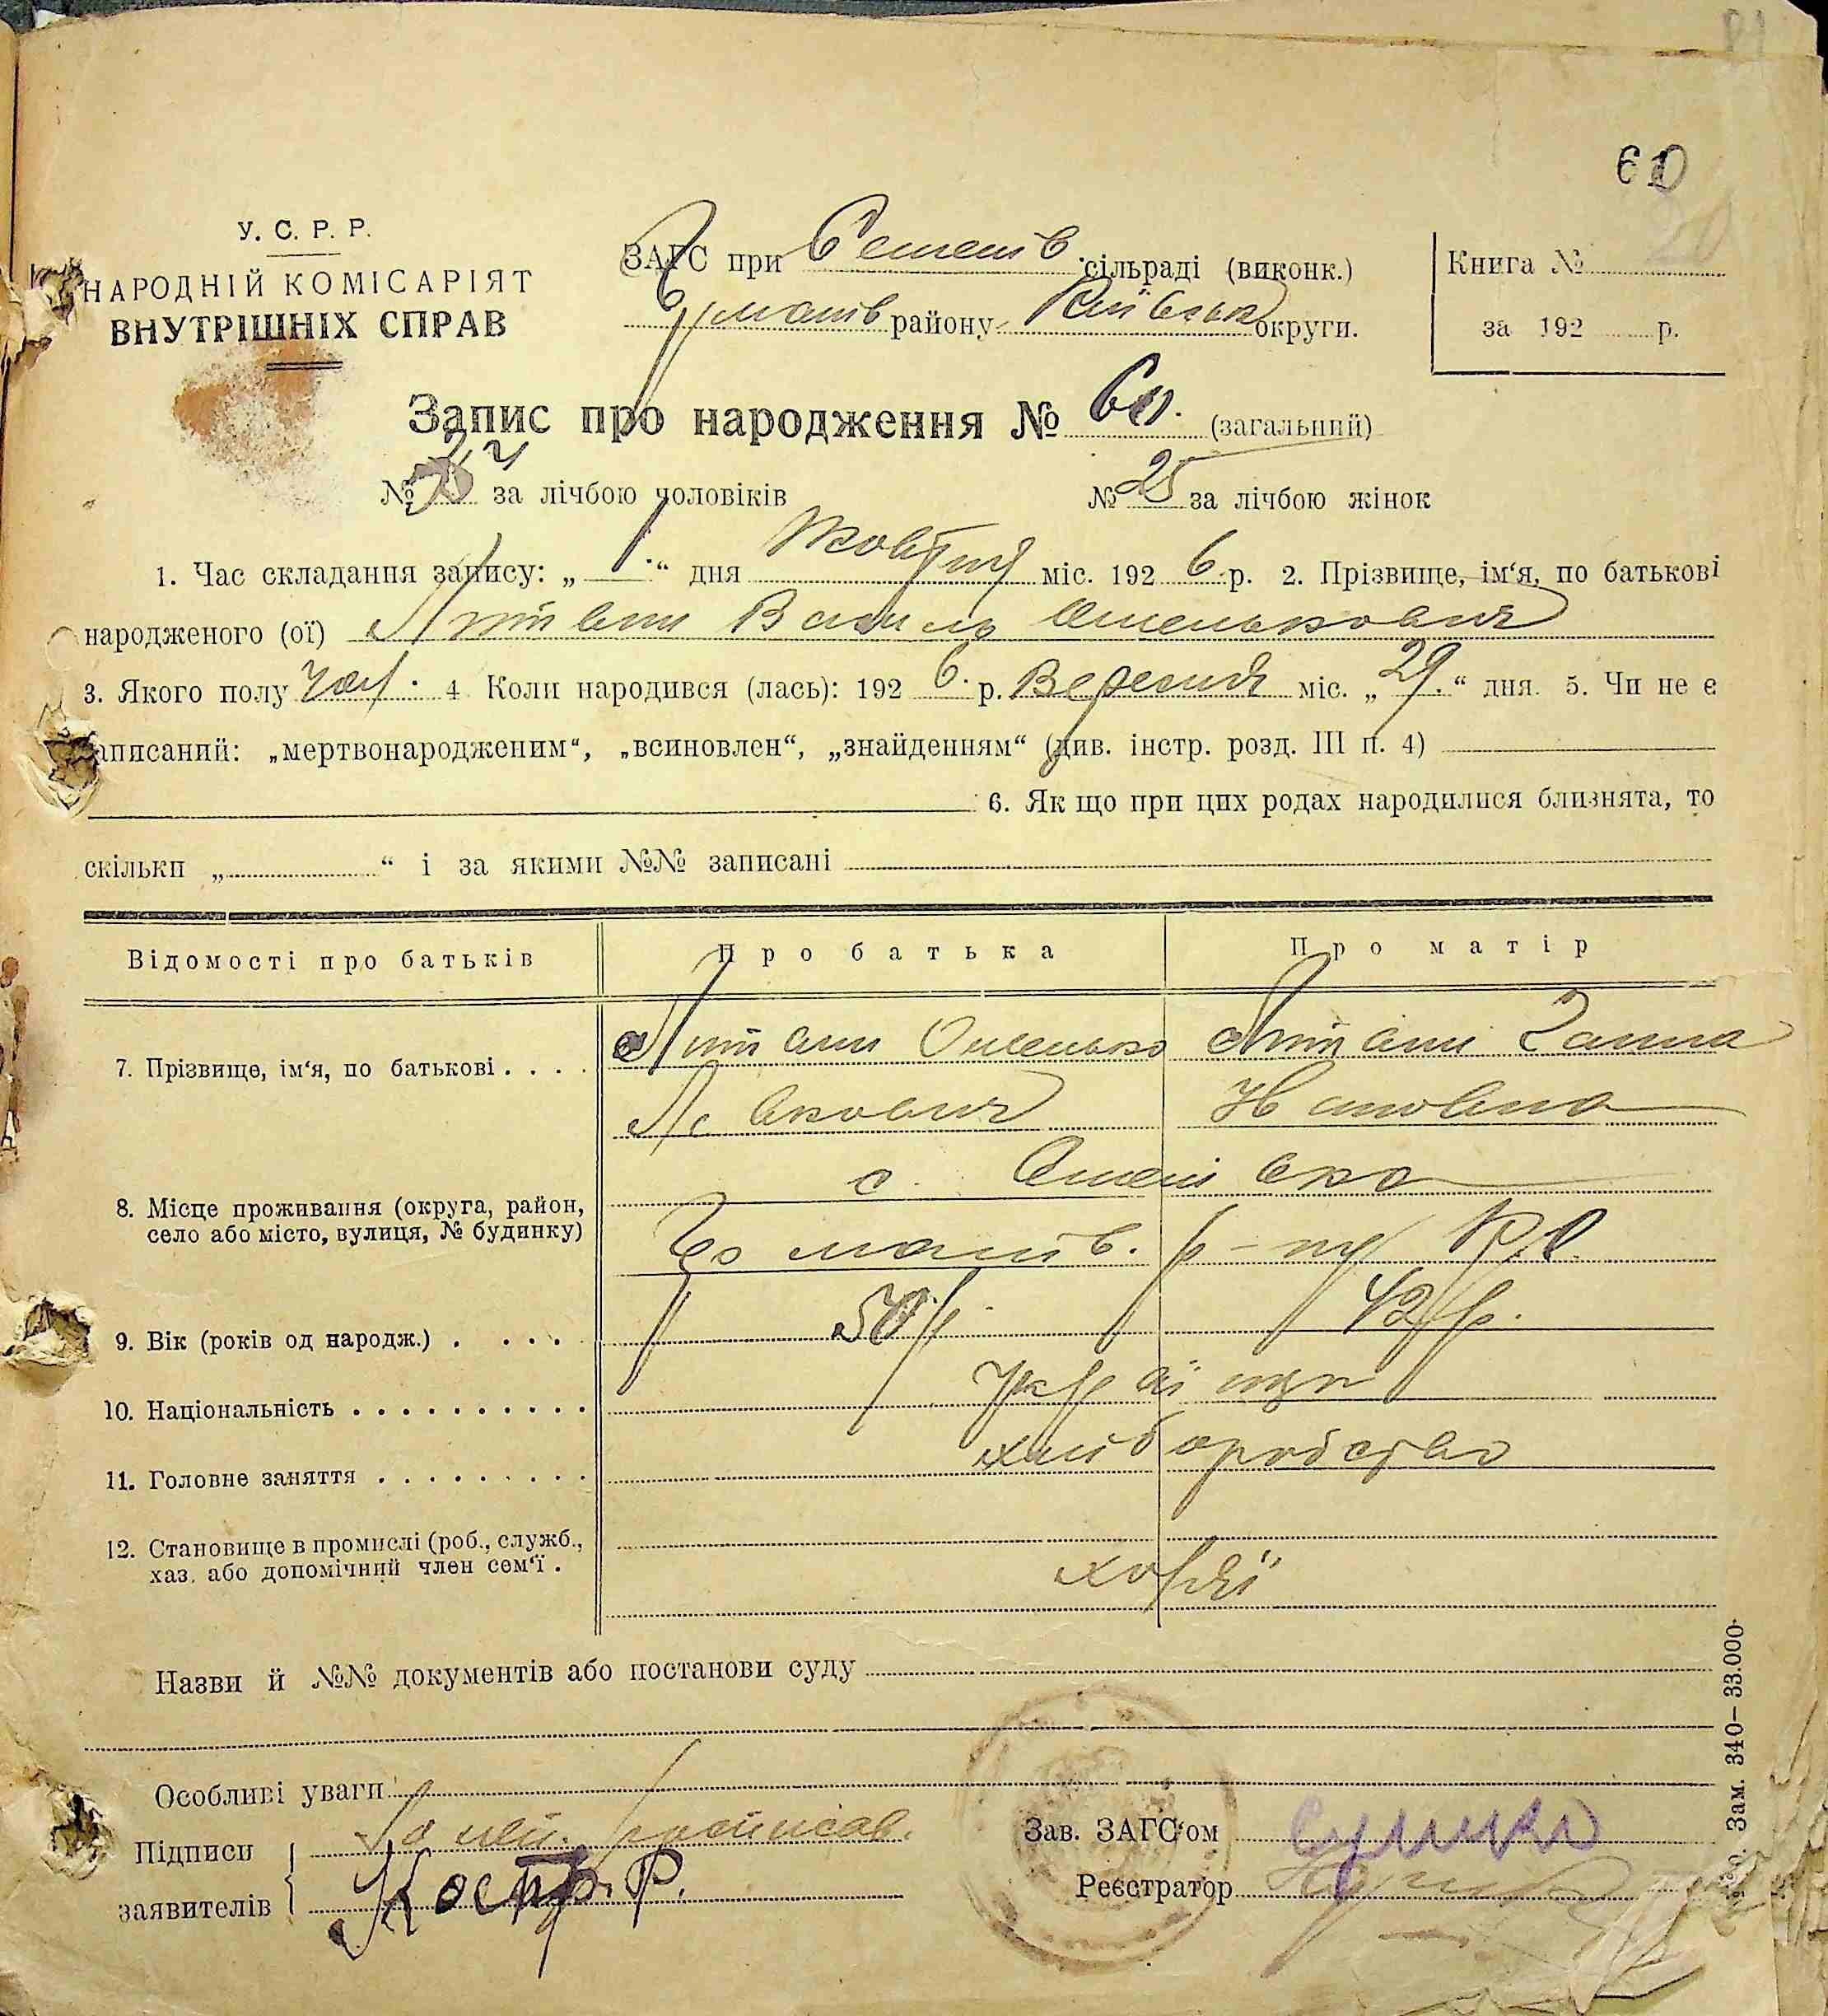 60
У. С. Р. Р.
НАРОДНІЙ КОМІСАРІЯТ
ВНУТРІШНІХ СПРАВ
ЗАГС при сільраді (виконк.)
району Київськ округи.
Книга №
за 192 р.
Запис про народження № 60. (загальний)
№ за лічбою чоловіків
№ 25 за лічбою жінок
1. Час складання запису: „ 1. “ дня Жовтня міс. 192 6 р. 2. Прізвище, ім‘я, по батькові
народженого (ої) Василь Омелькович
3. Якого полу чол. 4 Коли народився (лась): 192 6. р. Вересня міс. „ 29. “ дня. 5. Чи не є
записаний: „мертвонародженим“, „всиновлен“, „знайденням“ (див. інстр. розд. III п. 4)
6. Як що при цих родах народилися близнята, то
скільки „ “ і за якими №№ записані
Відомості про батьків Про батька Про матір
7. Прізвище, ім‘я, по батькові . . . . Омелько Ганна
8. Місце проживання (округа, район,
село або місто, вулиця, № будинку)
с.
р-ну К/О.
9. Вік (років од народж.) . . . . . 50 р. 42 р.
10. Національність . . . . . . . . . . українці
11. Головне заняття . . . . . . . . . хліборобство
12. Становище в промислі (роб., служб.,
хаз. або допомічний член сем‘ї .
хозяї
Назви й №№ документів або постанови суду
Особливі уваги
Підписи
заявителів
За неп. росписав.
Костр. Р.
Зав. ЗАГС‘ом
Реєстратор
Зам. 340— 33.000.